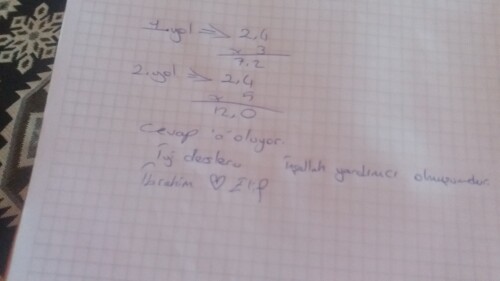 1.yol => 2,4
x 3
7,2
2.yol => 2,4
x 5
12,0
Cevap "a" oluyor.
İyi dersler. İnşallah yardımcı olmuşumdur.
İbrahim ♡